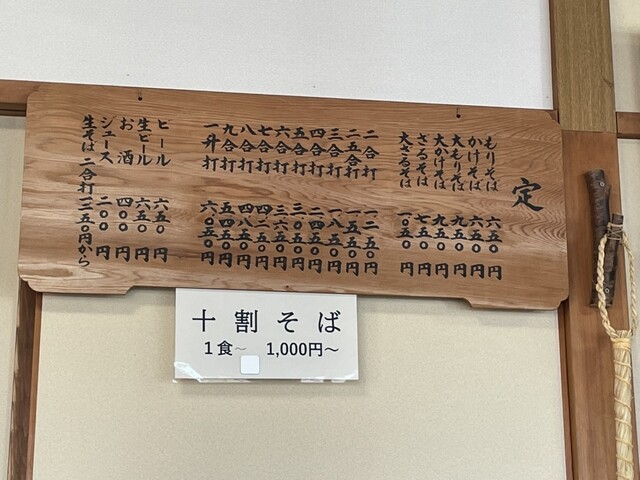 定
もりそば 六五〇円
かけそば 六五〇円
大もりそば 九五〇円
大かけそば 九五〇円
ざるそば 七五〇円
大ざるそば
二合打 一二五〇円
二五合打 一五五〇円
三合打 一八五〇円
四合打 二四五〇円
五合打 三〇五〇円
六合打 三六五〇円
七合打 四二五〇円
八合打 四八五〇円
九合打 五四五〇円
一升打 六〇五〇円
ビール 六五〇円
生ビール 六五〇円
お酒 四〇〇円
ジュース 二〇〇円
生そば 二合打 一二五〇円から
十割そば
1食～ 1,000円～